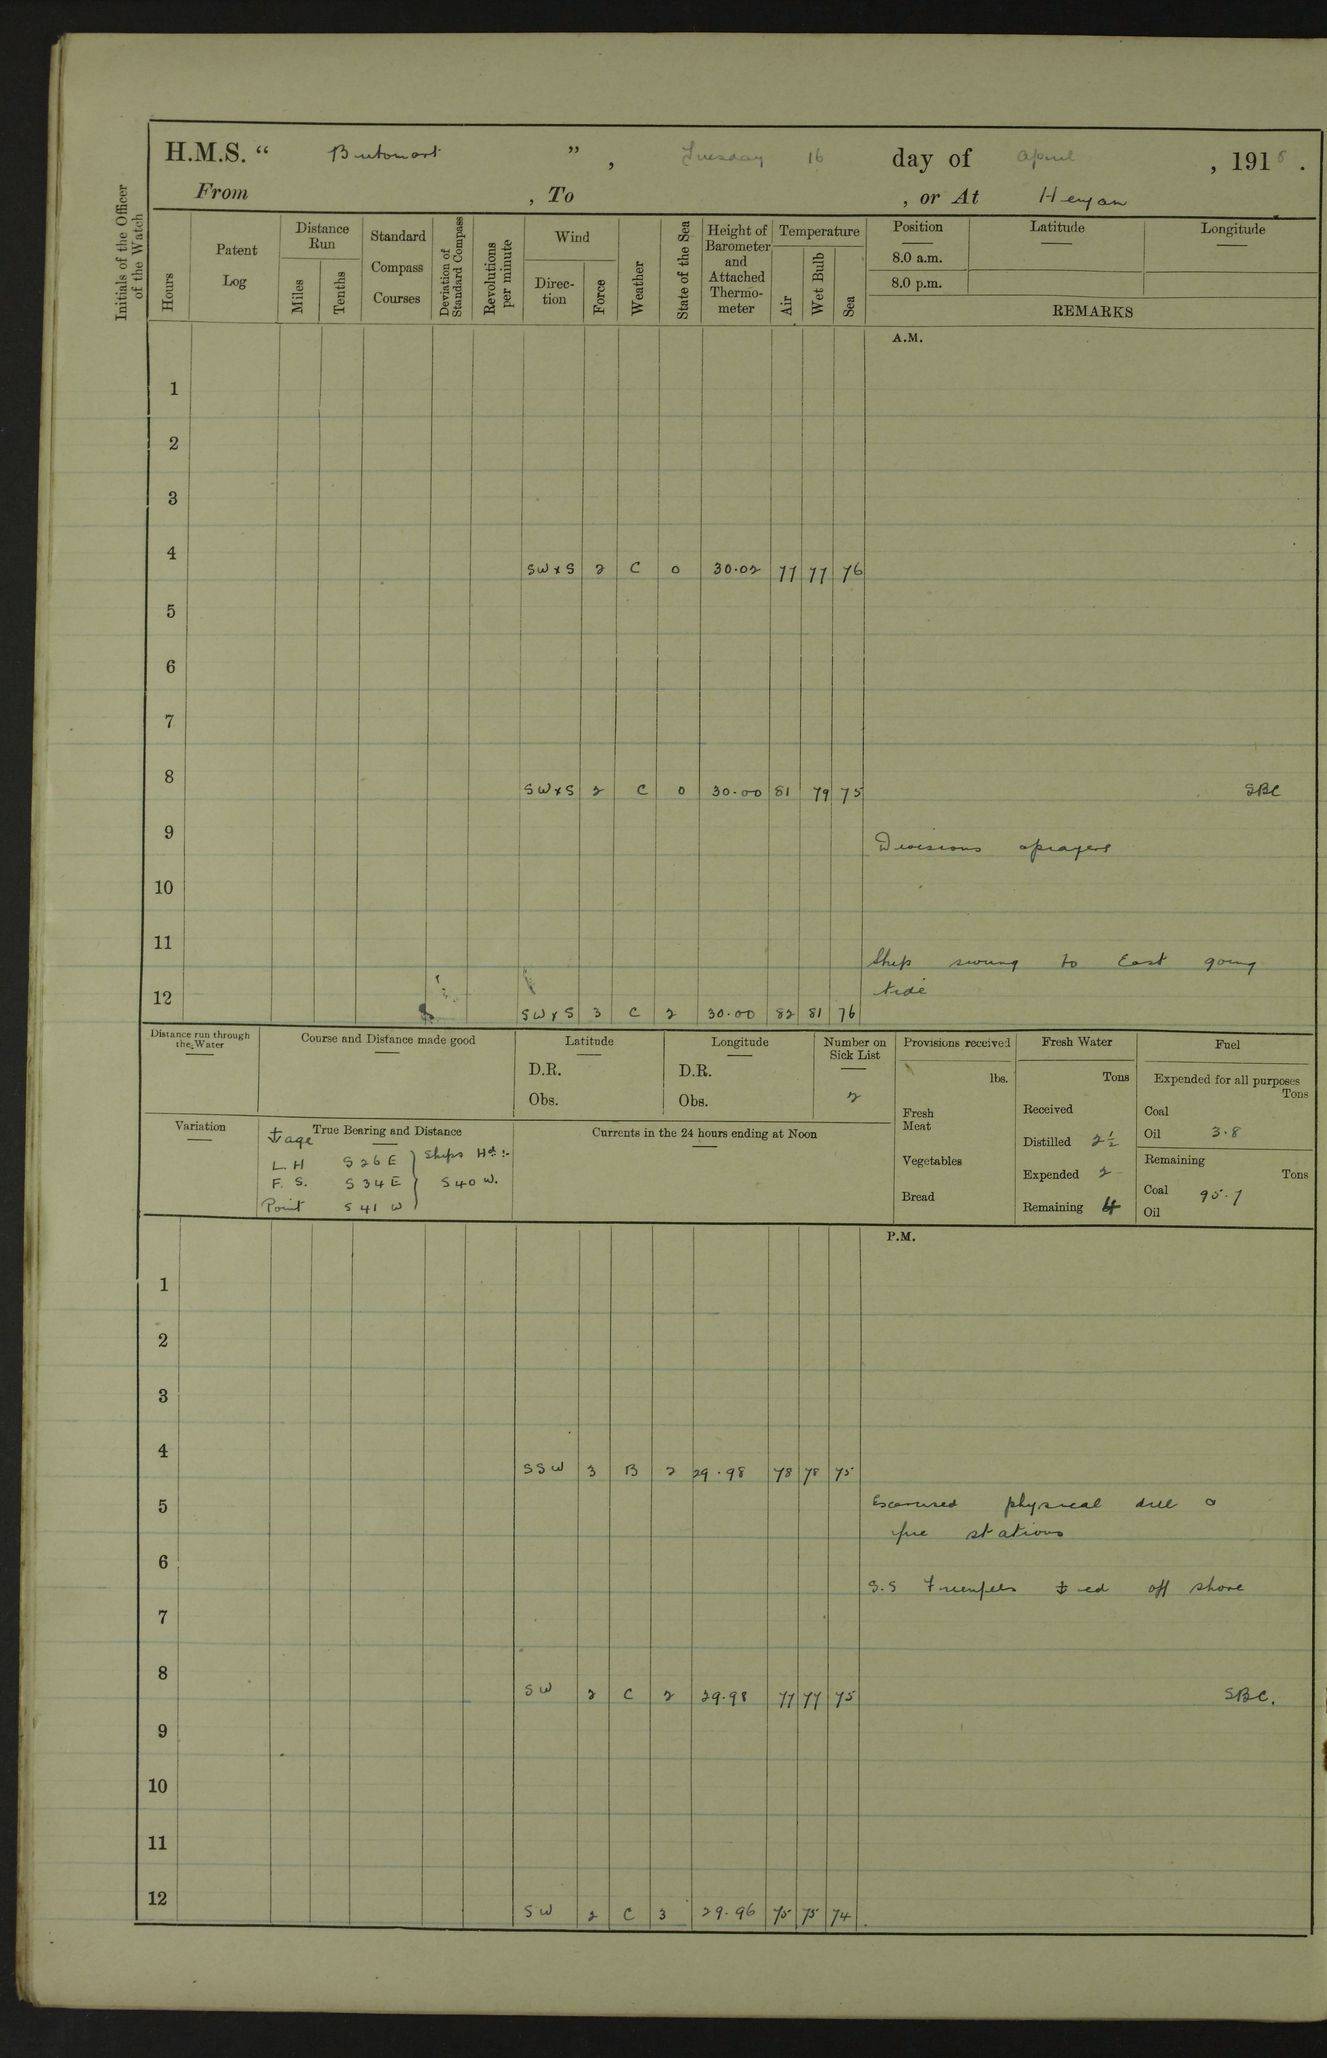 H.M.S. “ Britomart ” , Tuesday 16 day of April , 1918 .
From , To , or At Henjam
Initials of the Officer of the Watch
Hours
Patent Log
Distance Run
Miles
Tenths
Standard Compass Courses
Deviation of Standard Compass
Revolutions per minute
Wind
Direction
Force
Weather
State of the Sea
Height of Barometer and Attached Thermometer
Temperature
Air
Wet Bulb
Sea
Position Latitude Longitude
8.0 a.m.
8.0 p.m.
REMARKS
A.M.
1
2
3
4 SW x S 2 C 0 30.02 77 77 76
5
6
7
8 SW x S 2 C 0 30.00 81 79 75 SBC
9 Divisions & prayers
10
11 Ship swung to East going
tide
12 SW x S 3 C 2 30.00 82 81 76
Distance run through the Water
Course and Distance made good
Latitude
D.R.
Obs.
Longitude
D.R.
Obs.
Number on Sick List
2
Provisions received
lbs.
Fresh Meat
Vegetables
Bread
Fresh Water
Tons
Received
Distilled 2½
Expended 2
Remaining 4
Fuel
Expended for all purposes
Tons
Coal
Oil 3.8
Remaining
Tons
Coal 95.7
Oil
Variation
True Bearing and Distance
⚓age
L.H S 26 E } Ships Hd :-
F. S. S 34 E } S 40 W.
Point S 41 W
Currents in the 24 hours ending at Noon
P.M.
1
2
3
4 SSW 3 B 2 29.98 78 78 75
5 Exercised physical drill &
fire stations
6 S.S ⚓ed off shore
7
8 SW 2 C 2 29.98 77 77 75 SBC.
9
10
11
12 SW 2 C 3 29.96 75 75 74